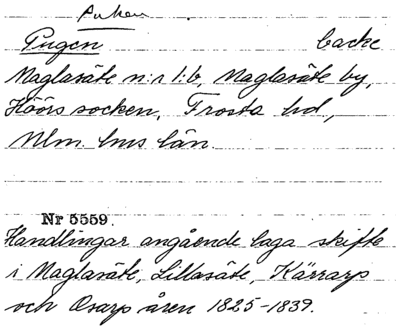 Puken
Pugen backe
Maglasäte n:r 1:b, Maglasäte by,
Höörs socken, Frosta hd,
Mlm hus län.
Nr 5559.
Handlingar angående laga skifte
i Maglasäte, Lillasäte, Kärrarp
och Osarp åren 1825-1839.